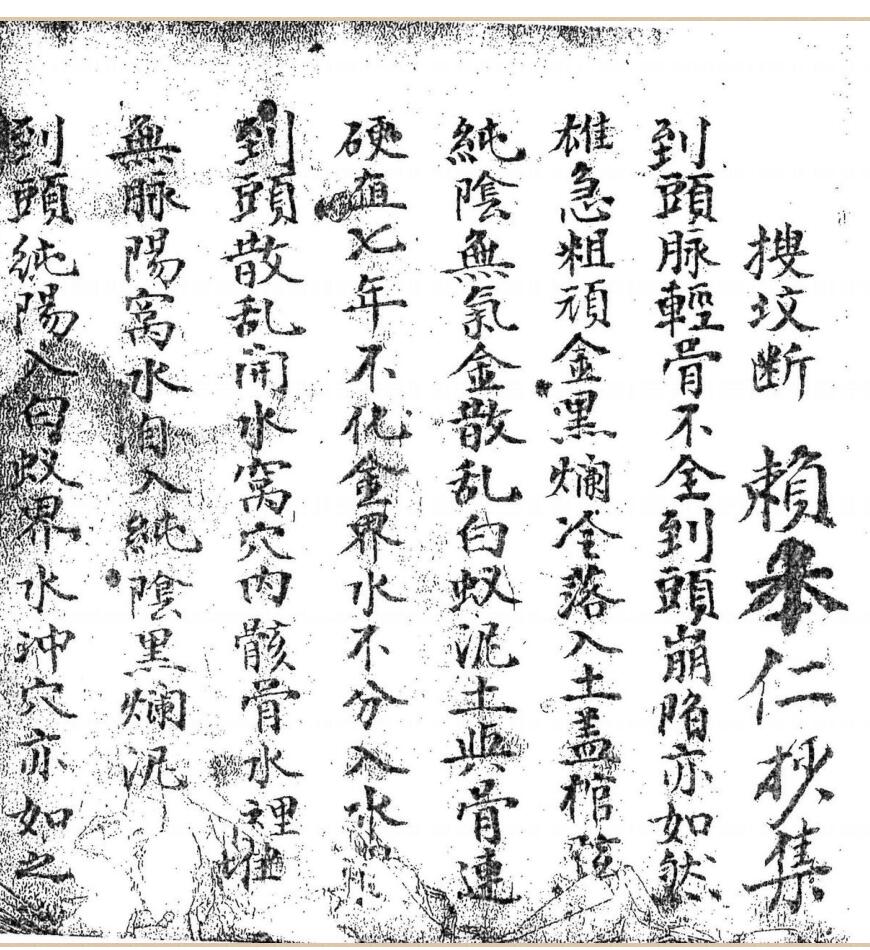 搜坟断 賴本仁抄集
到頭脉輕骨不全到頭崩陷亦如然
雄急粗頑金黑爛冷落入土盖棺弦
純陰無氣金散乱白蚁泥土與骨連
硬直七年不化金界水不分入水
到頭散乱開水窝穴内骸骨水裡
無脉陽窝水自入純陰黑爛泥
到頭純陽入白蚁界水冲穴亦如之